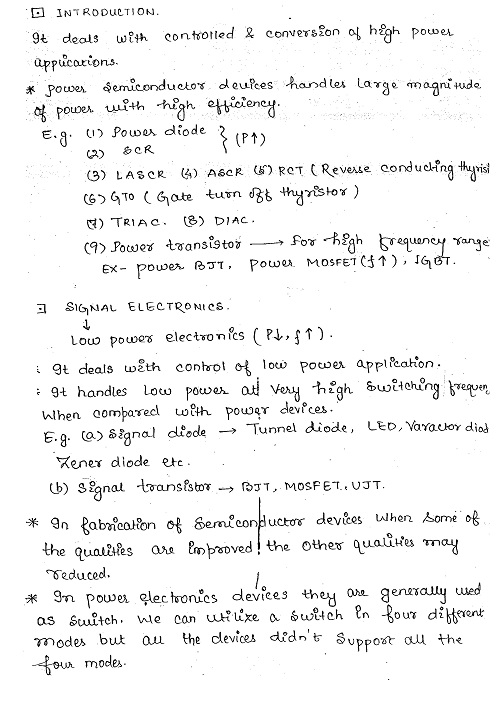 INTRODUCTION.
It deals with controlled & conversion of high power
applications.
* Power semiconductor devices handles large magnitude
of power with high efficiency.
E.g. (1) Power diode } (P↑)
(2) SCR
(3) LASCR (4) ASCR (5) RCT (Reverse conducting thyrist
(6) GTO (Gate turn off thyristor)
(7) TRIAC. (8) DIAC.
(9) Power transistor → For high frequency range
Ex- power BJT, power MOSFET (f↑), IGBT.
SIGNAL ELECTRONICS.
↓
Low power electronics (P↓, f↑).
: It deals with control of low power application.
: It handles low power at very high switching frequen
when compared with power devices.
E.g. (a) Signal diode → Tunnel diode, LED, Varactor diod
Zener diode etc.
(b) Signal transistor → BJT, MOSFET, UJT.
* In fabrication of semiconductor devices when some of
the qualities are improved the other qualities may
reduced.
* In power electronics devices they are generally used
as switch. We can utilize a switch in four different
modes but all the devices didn't support all the
four modes.